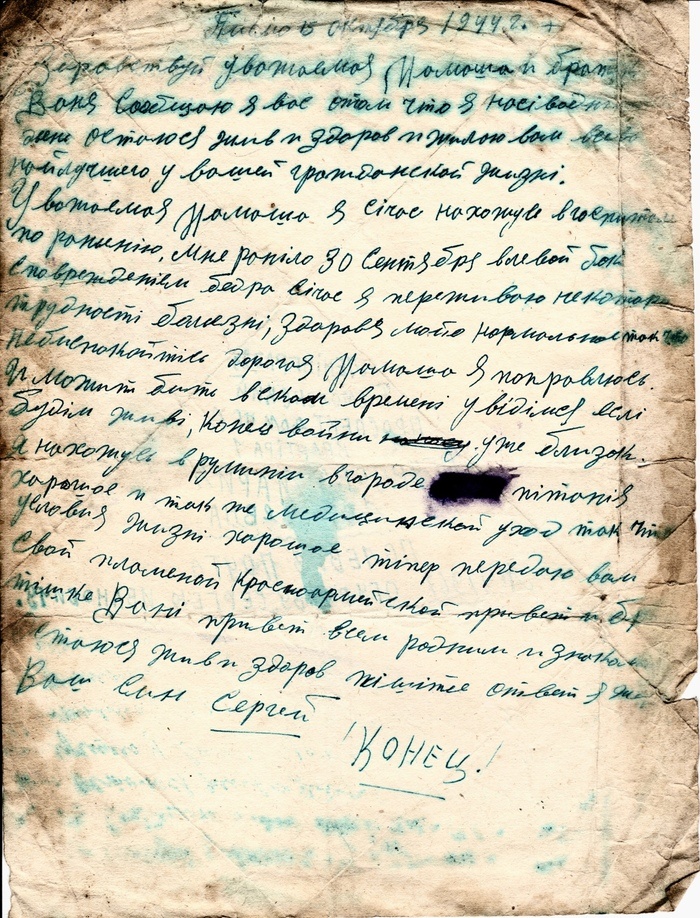 Писмо 5 октября 1944 г. +
Здравствуй уважаемая Мамаша и братик
Ваня Сообщаю я вас отом что я насiводнi
остаюся жив и здоров и жилаю вам всево
найлучшего у вашей гражданской жизнi.
Уважаемая Мамаша я сiчас нахожусь вгоспитале
по раненiю, Мне ранiло 30 Сентября влевой бок
споврежденiем бедра сiчас я переживаю некотори
трудностi болезнi, Здоровя мойо нормально так что
небиспокойтiсь дорогая Мамаша я поправлюсь.
И можит бить вском времени увiдiмся еслi
будiм живi, Конец войни уже близок.
Я нахожусь врумынiи вгороде пiтанiя
харошое и так же медицинской уход так что
условия жизнi харошое тiпер передаю вам
свой пламеной Красноармейской привет и бр
тiшке Ванi привет всем родним и знаком
стаюся жив и здоров пiшiтье ответ я жд
Ваш Син Сергей
! КОНЕЦ!